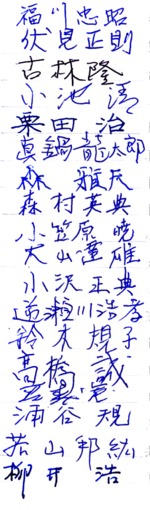 福川忠昭
伏見正則
古林隆
小池清
栗田治
真鍋龍太郎
森雅夫
森村英典
小笠原暁
犬山 雄
小沢正典
逆瀬川浩孝
鈴木 子
高橋 誠
若山邦紘
柳井浩